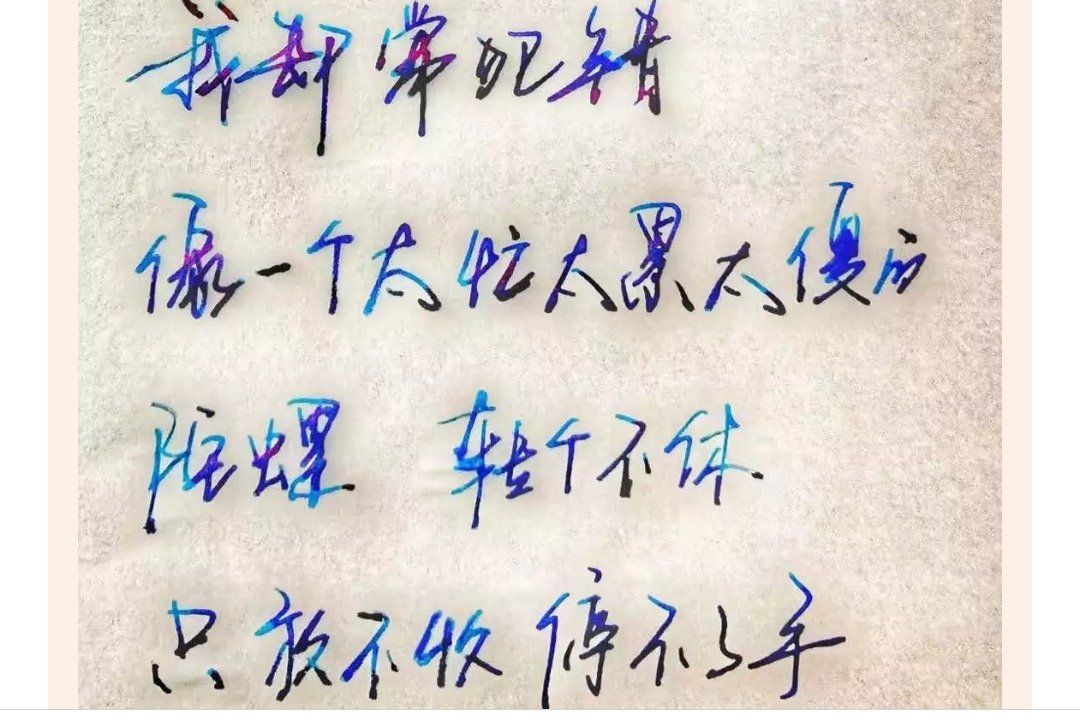 我却常犯错
像一个太忙太累太傻的
陀螺 转个不休
只放不收 停不了手